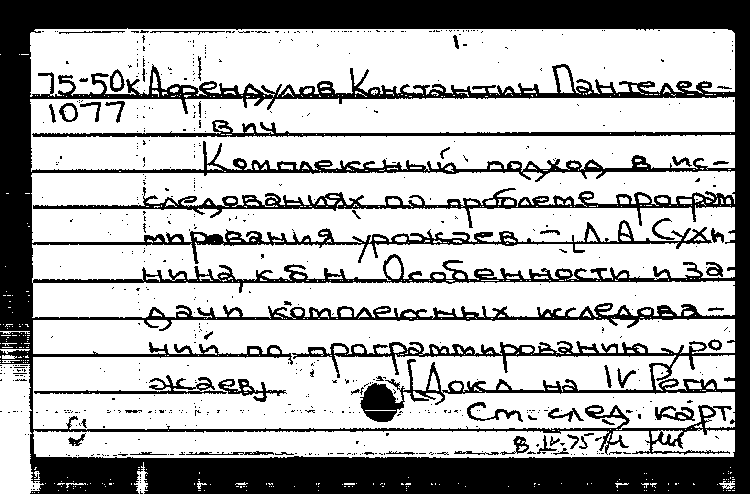 1.
75-50к Афендулов, Константин Пантелее-
1077
вич.
Комплексный подход в ис-
следованиях по проблеме програм
мирования урожаев. - [Л.А. Сухи-
нина, к.б.н. Особенности и за-
дачи комплексных исследова-
ний по программированию уро-
жаев]. [Докл. на IV Реги-
См. след. карт.
8.IV.75